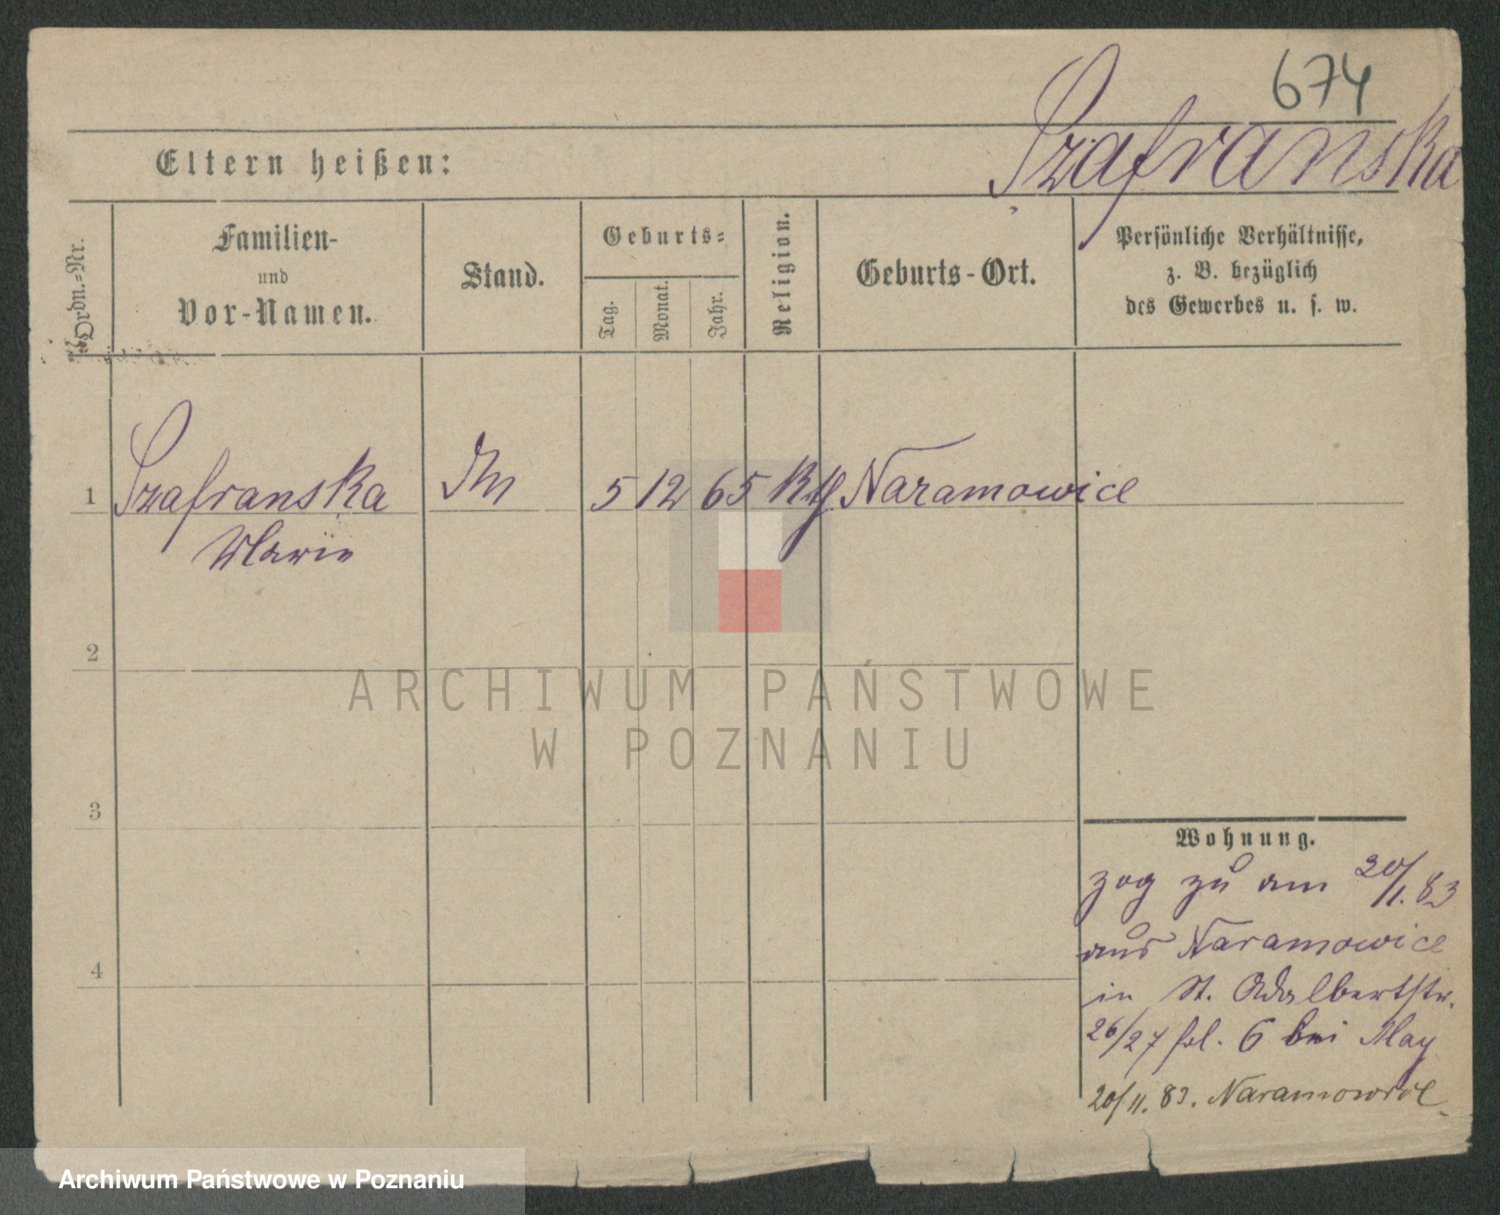 674
Szafranska
Eltern heißen:
Ordn.-Nr.
Familien-
und
Vor-Namen.
Stand.
Geburts-
Tag.
Monat.
Jahr.
Religion.
Geburts-Ort.
Persönliche Verhältnisse,
z. B. bezüglich
des Gewerbes u. s. w.
1 Szafranska 5 12 65 Kth Naramowice
Marie
2
3
4
Wohnung.
zog zu am 20/1. 83
aus Naramowice
in St. Adalbertstr.
26/27 fol. 6 bei May
20/11. 83. Naramowice
ARCHIWUM PAŃSTWOWE
W POZNANIU
Archiwum Państwowe w Poznaniu